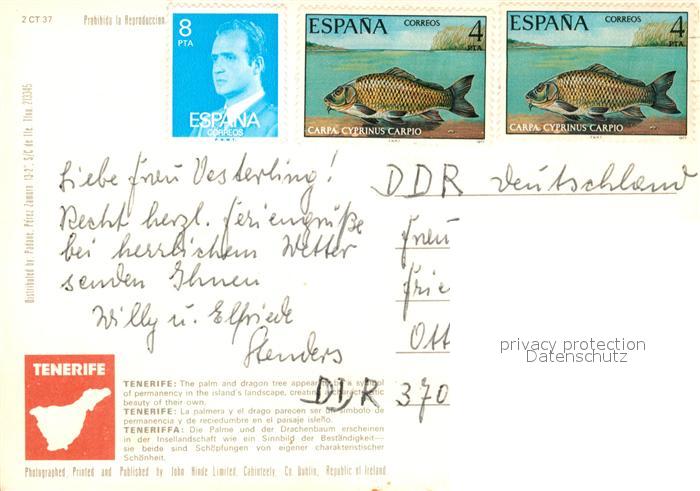 2 CT 37
Prohibida la Reproduccion.
8
PTA
ESPAÑA
CORREOS
F.N.M.T.
ESPAÑA CORREOS 4
PTA
CARPA. CYPRINUS CARPIO
F.N.M.T. 1977
ESPAÑA CORREOS 4
PTA
CARPA. CYPRINUS CARPIO
F.N.M.T. 1977
Distributed by: Pérez Zamora S/C de Tfe. Tfno. 213345
Liebe Frau Vesterling!
Recht herzl. Feriengrüße
bei herrlichem Wetter
senden Ihnen
Willy u. Elfriede
Stenders
DDR Deutschland
Frau
Frie
Ott
DDR 370
privacy protection
Datenschutz
TENERIFE
TENERIFE: The palm and dragon tree appear to be a symbol
of permanency in the island's landscape, creating a characteristic
beauty of their own.
TENERIFE: La palmera y el drago parecen ser un símbolo de
permanencia y de reciedumbre en el paisaje isleño.
TENERIFFA: Die Palme und der Drachenbaum erscheinen
in der Insellandschaft wie ein Sinnbild der Beständigkeit—
sie beide sind Schöpfungen von eigener charakteristischer
Schönheit.
Photographed, Printed and Published by John Hinde Limited, Cabinteely, Co. Dublin, Republic of Ireland